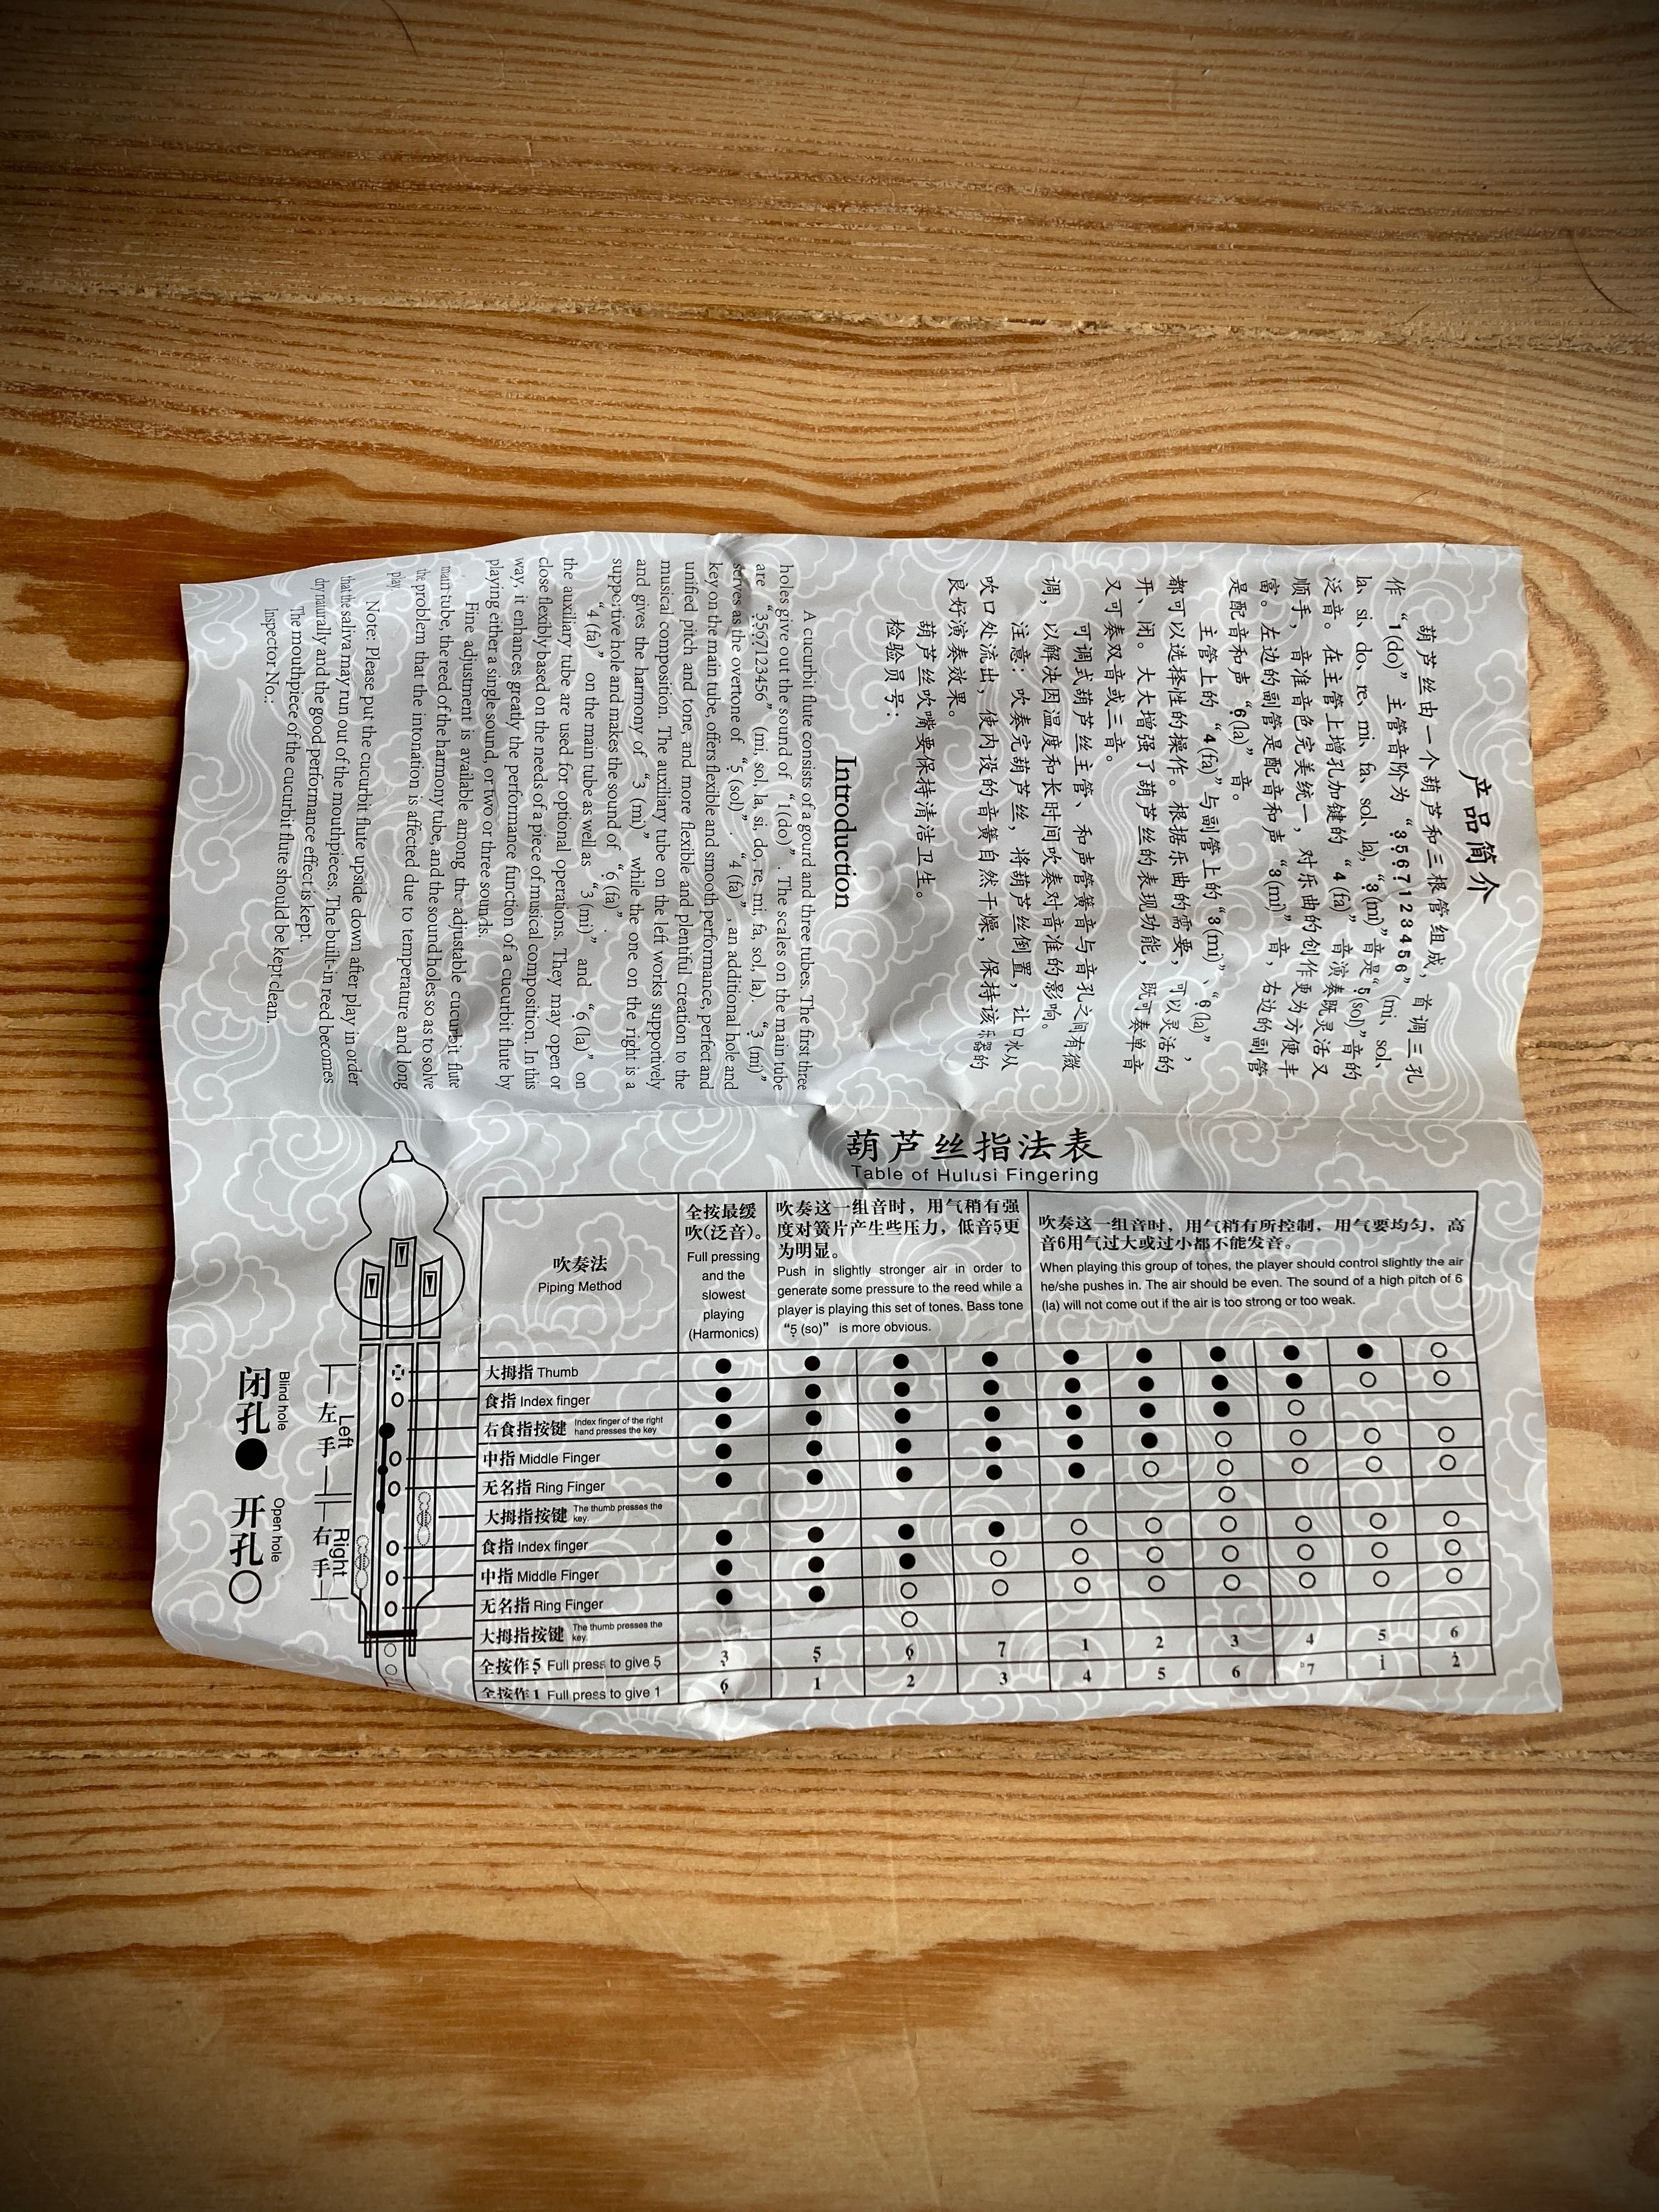 产品简介
葫芦丝由一个葫芦和三根管组成，首调三孔
作“1(do)”主管音阶为“3̣5̣6̣7̣123456”(mi、sol、
la、si、do、re、mi、fa、sol、la),“3̣(mi)”音是“5̣(sol)”音的
泛音。在主管上增孔加键的“4(fa)”音演奏既灵活又
顺手，音准音色完美统一，对乐曲的创作更为方便丰
富。左边的副管是配音和声“3(mi)”音，右边的副管
是配音和声“6̣(la)”音。
主管上的“4(fa)”与副管上的“3(mi)”、“6̣(la)”，
都可以选择性的操作。根据乐曲的需要，可以灵活的
开、闭。大大增强了葫芦丝的表现功能，既可奏单音
又可奏双音或三音。
可调式葫芦丝主管、和声管簧音与音孔之间有微
调，以解决因温度和长时间吹奏对音准的影响。
注意：吹奏完葫芦丝，将葫芦丝倒置，让口水从
吹口处流出，使内设的音簧自然干燥，保持该乐器的
良好演奏效果。
葫芦丝吹嘴要保持清洁卫生。
检验员号：
Introduction
A cucurbit flute consists of a gourd and three tubes. The first three
holes give out the sound of “1(do)”. The scales on the main tube
are “3̣5̣6̣7̣123456” (mi, sol, la, si, do, re, mi, fa, sol, la). “3̣ (mi)”
serves as the overtone of “5̣ (sol)”. “4 (fa)”, an additional hole and
key on the main tube, offers flexible and smooth performance, perfect and
unified pitch and tone, and more flexible and plentiful creation to the
musical composition. The auxiliary tube on the left works supportively
and gives the harmony of “3 (mi)” while the one on the right is a
supportive hole and makes the sound of “6̣ (fa)”.
“4 (fa)” on the main tube as well as “3 (mi)” and “6̣ (la)” on
the auxiliary tube are used for optional operations. They may open or
close flexibly based on the needs of a piece of musical composition. In this
way, it enhances greatly the performance function of a cucurbit flute by
playing either a single sound, or two or three sounds.
Fine adjustment is available among the adjustable cucurbit flute
main tube, the reed of the harmony tube, and the sound holes so as to solve
the problem that the intonation is affected due to temperature and long
play.
Note: Please put the cucurbit flute upside down after play in order
that the saliva may run out of the mouthpieces. The built-in reed becomes
dry naturally and the good performance effect is kept.
The mouthpiece of the cucurbit flute should be kept clean.
Inspector No.:
葫芦丝指法表
Table of Hulusi Fingering
吹奏法
Piping Method
全按最缓
吹(泛音)。
Full pressing
and the
slowest
playing
(Harmonics)
吹奏这一组音时，用气稍有强
度对簧片产生些压力，低音5̣更
为明显。
Push in slightly stronger air in order to
generate some pressure to the reed while a
player is playing this set of tones. Bass tone
“5̣ (so)” is more obvious.
吹奏这一组音时，用气稍有所控制，用气要均匀，高
音6用气过大或过小都不能发音。
When playing this group of tones, the player should control slightly the air
he/she pushes in. The air should be even. The sound of a high pitch of 6
(la) will not come out if the air is too strong or too weak.
大拇指 Thumb ● ● ● ● ● ● ● ● ● ○
食指 Index finger ● ● ● ● ● ● ● ● ○ ○
右食指按键 Index finger of the right hand presses the key ● ● ● ● ● ● ● ○
中指 Middle Finger ● ● ● ● ● ● ○ ○ ○ ○
无名指 Ring Finger ● ● ● ● ● ○ ○ ○ ○ ○
大拇指按键 The thumb presses the key. ○
食指 Index finger ● ● ● ● ○ ○ ○ ○ ○ ○
中指 Middle Finger ● ● ● ○ ○ ○ ○ ○ ○ ○
无名指 Ring Finger ● ● ○ ○ ○ ○ ○ ○ ○ ○
大拇指按键 The thumb presses the key. ○
全按作5̣ Full press to give 5̣ 3̣ 5̣ 6̣ 7̣ 1 2 3 4 5 6
全按作1 Full press to give 1 6̣ 1 2 3 4 5 6 ♭7 1̇ 2̇
左手
Left
右手
Right
闭孔 ●
Blind hole
开孔 ○
Open hole